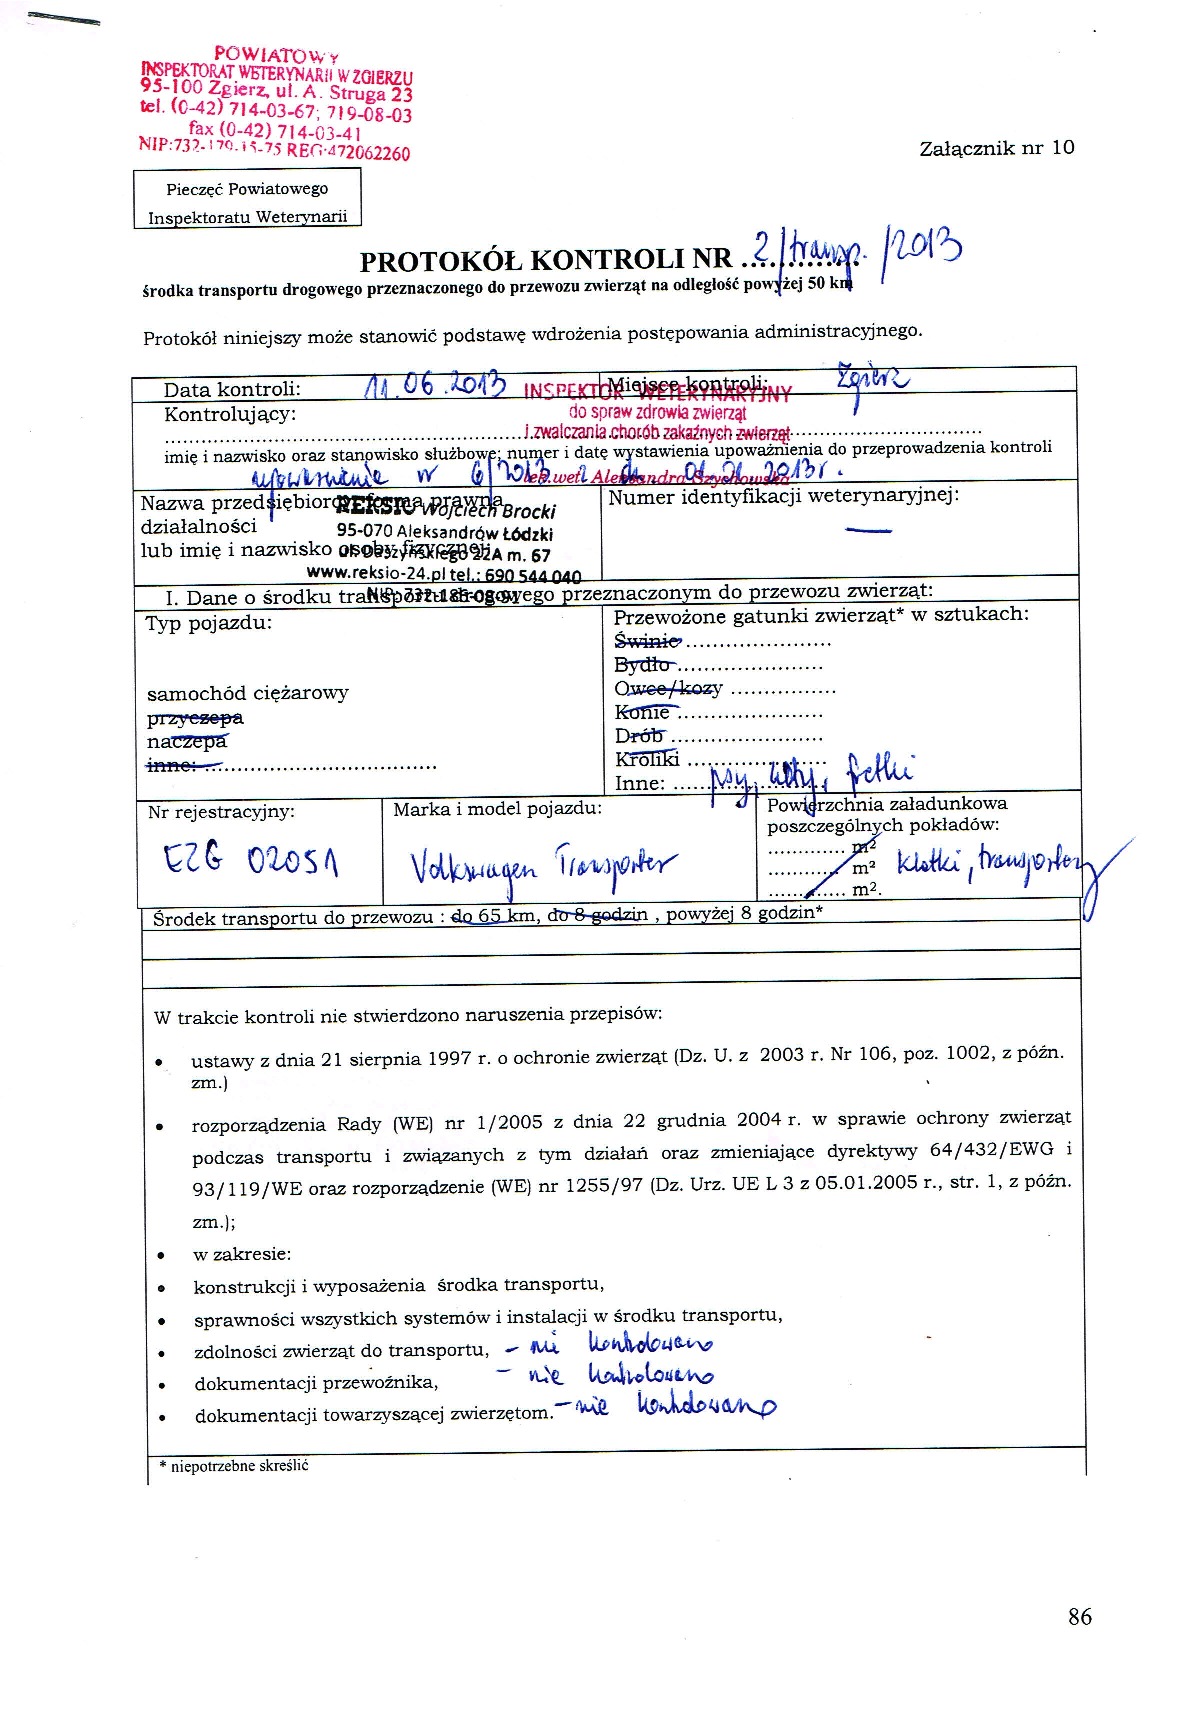 POWIATOWY
INSPEKTORAT WETERYNARII W ZGIERZU
95-100 Zgierz, ul. A. Struga 23
tel. (0-42) 714-03-67; 719-08-03
fax (0-42) 714-03-41
NIP:732-179-15-75 REG:472062260
Załącznik nr 10
Pieczęć Powiatowego
Inspektoratu Weterynarii
PROTOKÓŁ KONTROLI NR 2/transp./2013
środka transportu drogowego przeznaczonego do przewozu zwierząt na odległość powyżej 50 km
Protokół niniejszy może stanowić podstawę wdrożenia postępowania administracyjnego.
Data kontroli: 11.06.2013 Miejsce kontroli: Zgierz
INSPEKTOR WETERYNARYJNY
Kontrolujący: do spraw zdrowia zwierząt
i zwalczania chorób zakaźnych zwierząt
imię i nazwisko oraz stanowisko służbowe; numer i datę wystawienia upoważnienia do przeprowadzenia kontroli
lek.wet. Aleksandra Szychowska
upoważnienie nr 6/2013 z dn. 01.01.2013r.
Nazwa przedsiębiorcy, forma prawna
działalności
lub imię i nazwisko osoby fizycznej:
REKSIO Wojciech Brocki
95-070 Aleksandrów Łódzki
ul. Daszyńskiego 22A m. 67
www.reksio-24.pl tel.: 690 544 040
Numer identyfikacji weterynaryjnej:
—
I. Dane o środku transportu drogowego przeznaczonym do przewozu zwierząt:
Typ pojazdu:
samochód ciężarowy
przyczepa
naczepa
inne: ..................................
Przewożone gatunki zwierząt* w sztukach:
Świnie ......................
Bydło ......................
Owce/kozy ................
Konie ......................
Drób ......................
Króliki ......................
Inne: psy, koty, fretki
Nr rejestracyjny:
EZG 02051
Marka i model pojazdu:
Volkswagen Transporter
Powierzchnia załadunkowa
poszczególnych pokładów:
............ m²
............ m² klatki, transportery
............ m².
Środek transportu do przewozu : do 65 km, do 8 godzin , powyżej 8 godzin*
W trakcie kontroli nie stwierdzono naruszenia przepisów:
• ustawy z dnia 21 sierpnia 1997 r. o ochronie zwierząt (Dz. U. z 2003 r. Nr 106, poz. 1002, z późn.
zm.)
• rozporządzenia Rady (WE) nr 1/2005 z dnia 22 grudnia 2004 r. w sprawie ochrony zwierząt
podczas transportu i związanych z tym działań oraz zmieniające dyrektywy 64/432/EWG i
93/119/WE oraz rozporządzenie (WE) nr 1255/97 (Dz. Urz. UE L 3 z 05.01.2005 r., str. 1, z późn.
zm.);
• w zakresie:
• konstrukcji i wyposażenia środka transportu,
• sprawności wszystkich systemów i instalacji w środku transportu,
• zdolności zwierząt do transportu, - nie kontrolowano
• dokumentacji przewoźnika, - nie kontrolowano
• dokumentacji towarzyszącej zwierzętom. - nie kontrolowano
* niepotrzebne skreślić
86